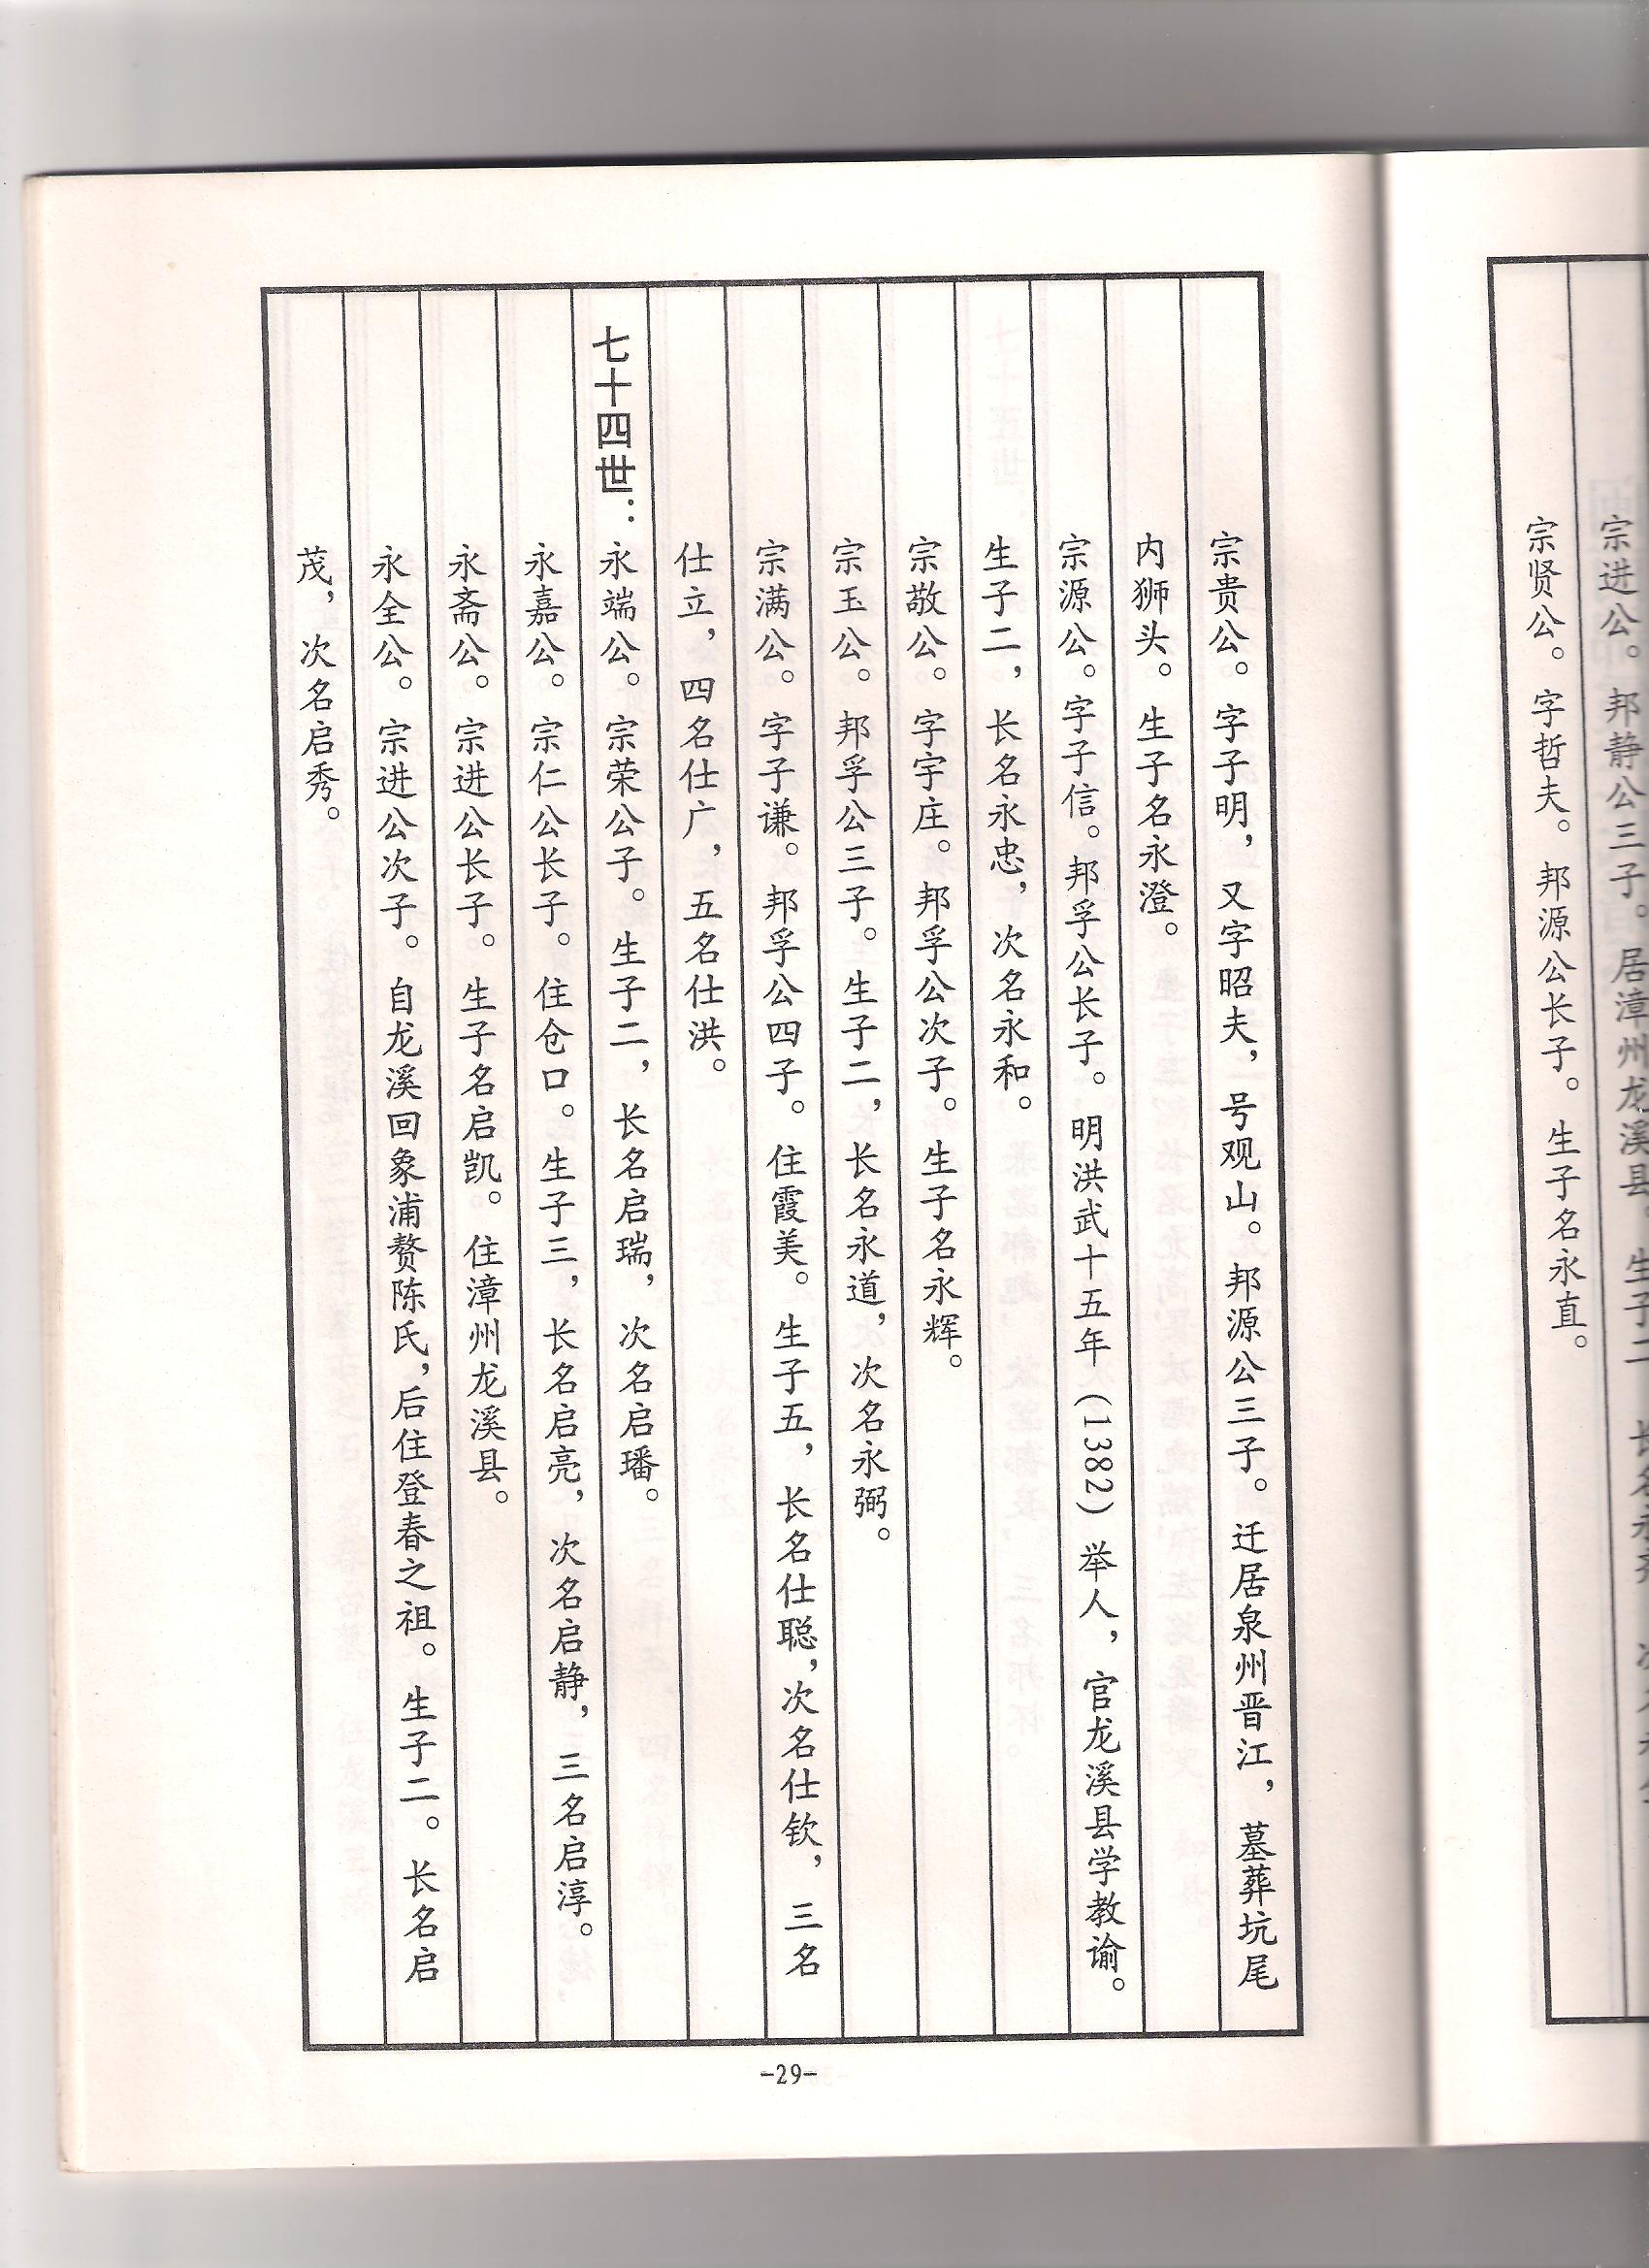 宗进公。邦静公三子。居漳州龙溪县。生子二
宗贤公。字哲夫。邦源公长子。生子名永直。
宗贵公。字子明，又字昭夫，号观山。邦源公三子。迁居泉州晋江，墓葬坑尾
内狮头。生子名永澄。
宗源公。字子信。邦孚公长子。明洪武十五年（1382）举人，官龙溪县学教谕。
生子二，长名永忠，次名永和。
宗敬公。字宇庄。邦孚公次子。生子名永辉。
宗玉公。邦孚公三子。生子二，长名永道，次名永弼。
宗满公。字子谦。邦孚公四子。住霞美。生子五，长名仕聪，次名仕钦，三名
仕立，四名仕广，五名仕洪。
七十四世：永端公。宗荣公子。生子二，长名启瑞，次名启璠。
永嘉公。宗仁公长子。住仓口。生子三，长名启亮，次名启静，三名启淳。
永斋公。宗进公长子。生子名启凯。住漳州龙溪县。
永全公。宗进公次子。自龙溪回象浦赘陈氏，后住登春之祖。生子二。长名启
茂，次名启秀。
-29-